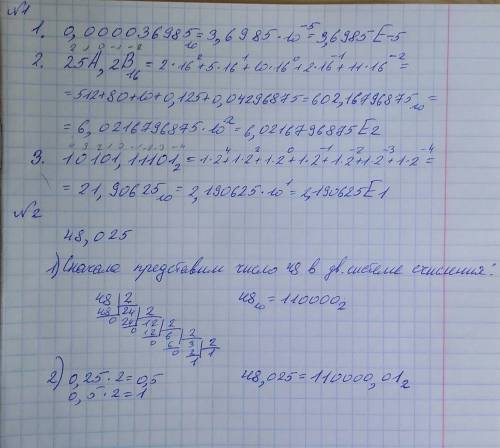 №1
1. 0,000036985₁₀ = 3,6985·10⁻⁵ = 3,6985E-5
2 1 0 -1 -2
2. 25A,2B₁₆ = 2·16² + 5·16¹ + 10·16⁰ + 2·16⁻¹ + 11·16⁻² =
= 512+80+10+0,125+0,04296875 = 602,16796875₁₀ =
= 6,0216796875·10² = 6,0216796875E2
4 3 2 1 0 -1 -2 -3 -4
3. 10101,11101₂ = 1·2⁴ + 1·2² + 1·2⁰ + 1·2⁻¹ + 1·2⁻² + 1·2⁻³ + 1·2⁻⁴ =
= 21,90625₁₀ = 2,190625·10¹ = 2,190625E1
№2
48,025
1) Сначала представим число 48 в дв. системе счисления:
48 | 2 48₁₀ = 110000₂
48 24 | 2
0 24 12 | 2
0 12 6 | 2
0 6 3 | 2
0 2 1
1
2) 0,25·2 = 0,5 48,025 = 110000,01₂
0,5·2 = 1